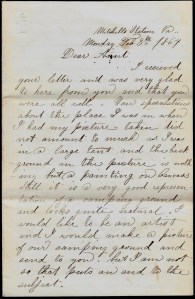 Mitchells Station Va.
Monday Feb 5th 1864
Dear Aunt
I received
your letter and was very glad
to hear from you and that you
were all well. Your speculations
about the place I was in when
I had my picture taken did
not amount to much as I was
in a large tent and the back
ground in this picture is noth
ing but a painting on canvas
Still it is a very good represen
tation of a camping ground
and looks quite natural. I
would like to be any artist
and I would make a picture
of our camping ground and
send to you but I am not
so that puts an end to the
subject.